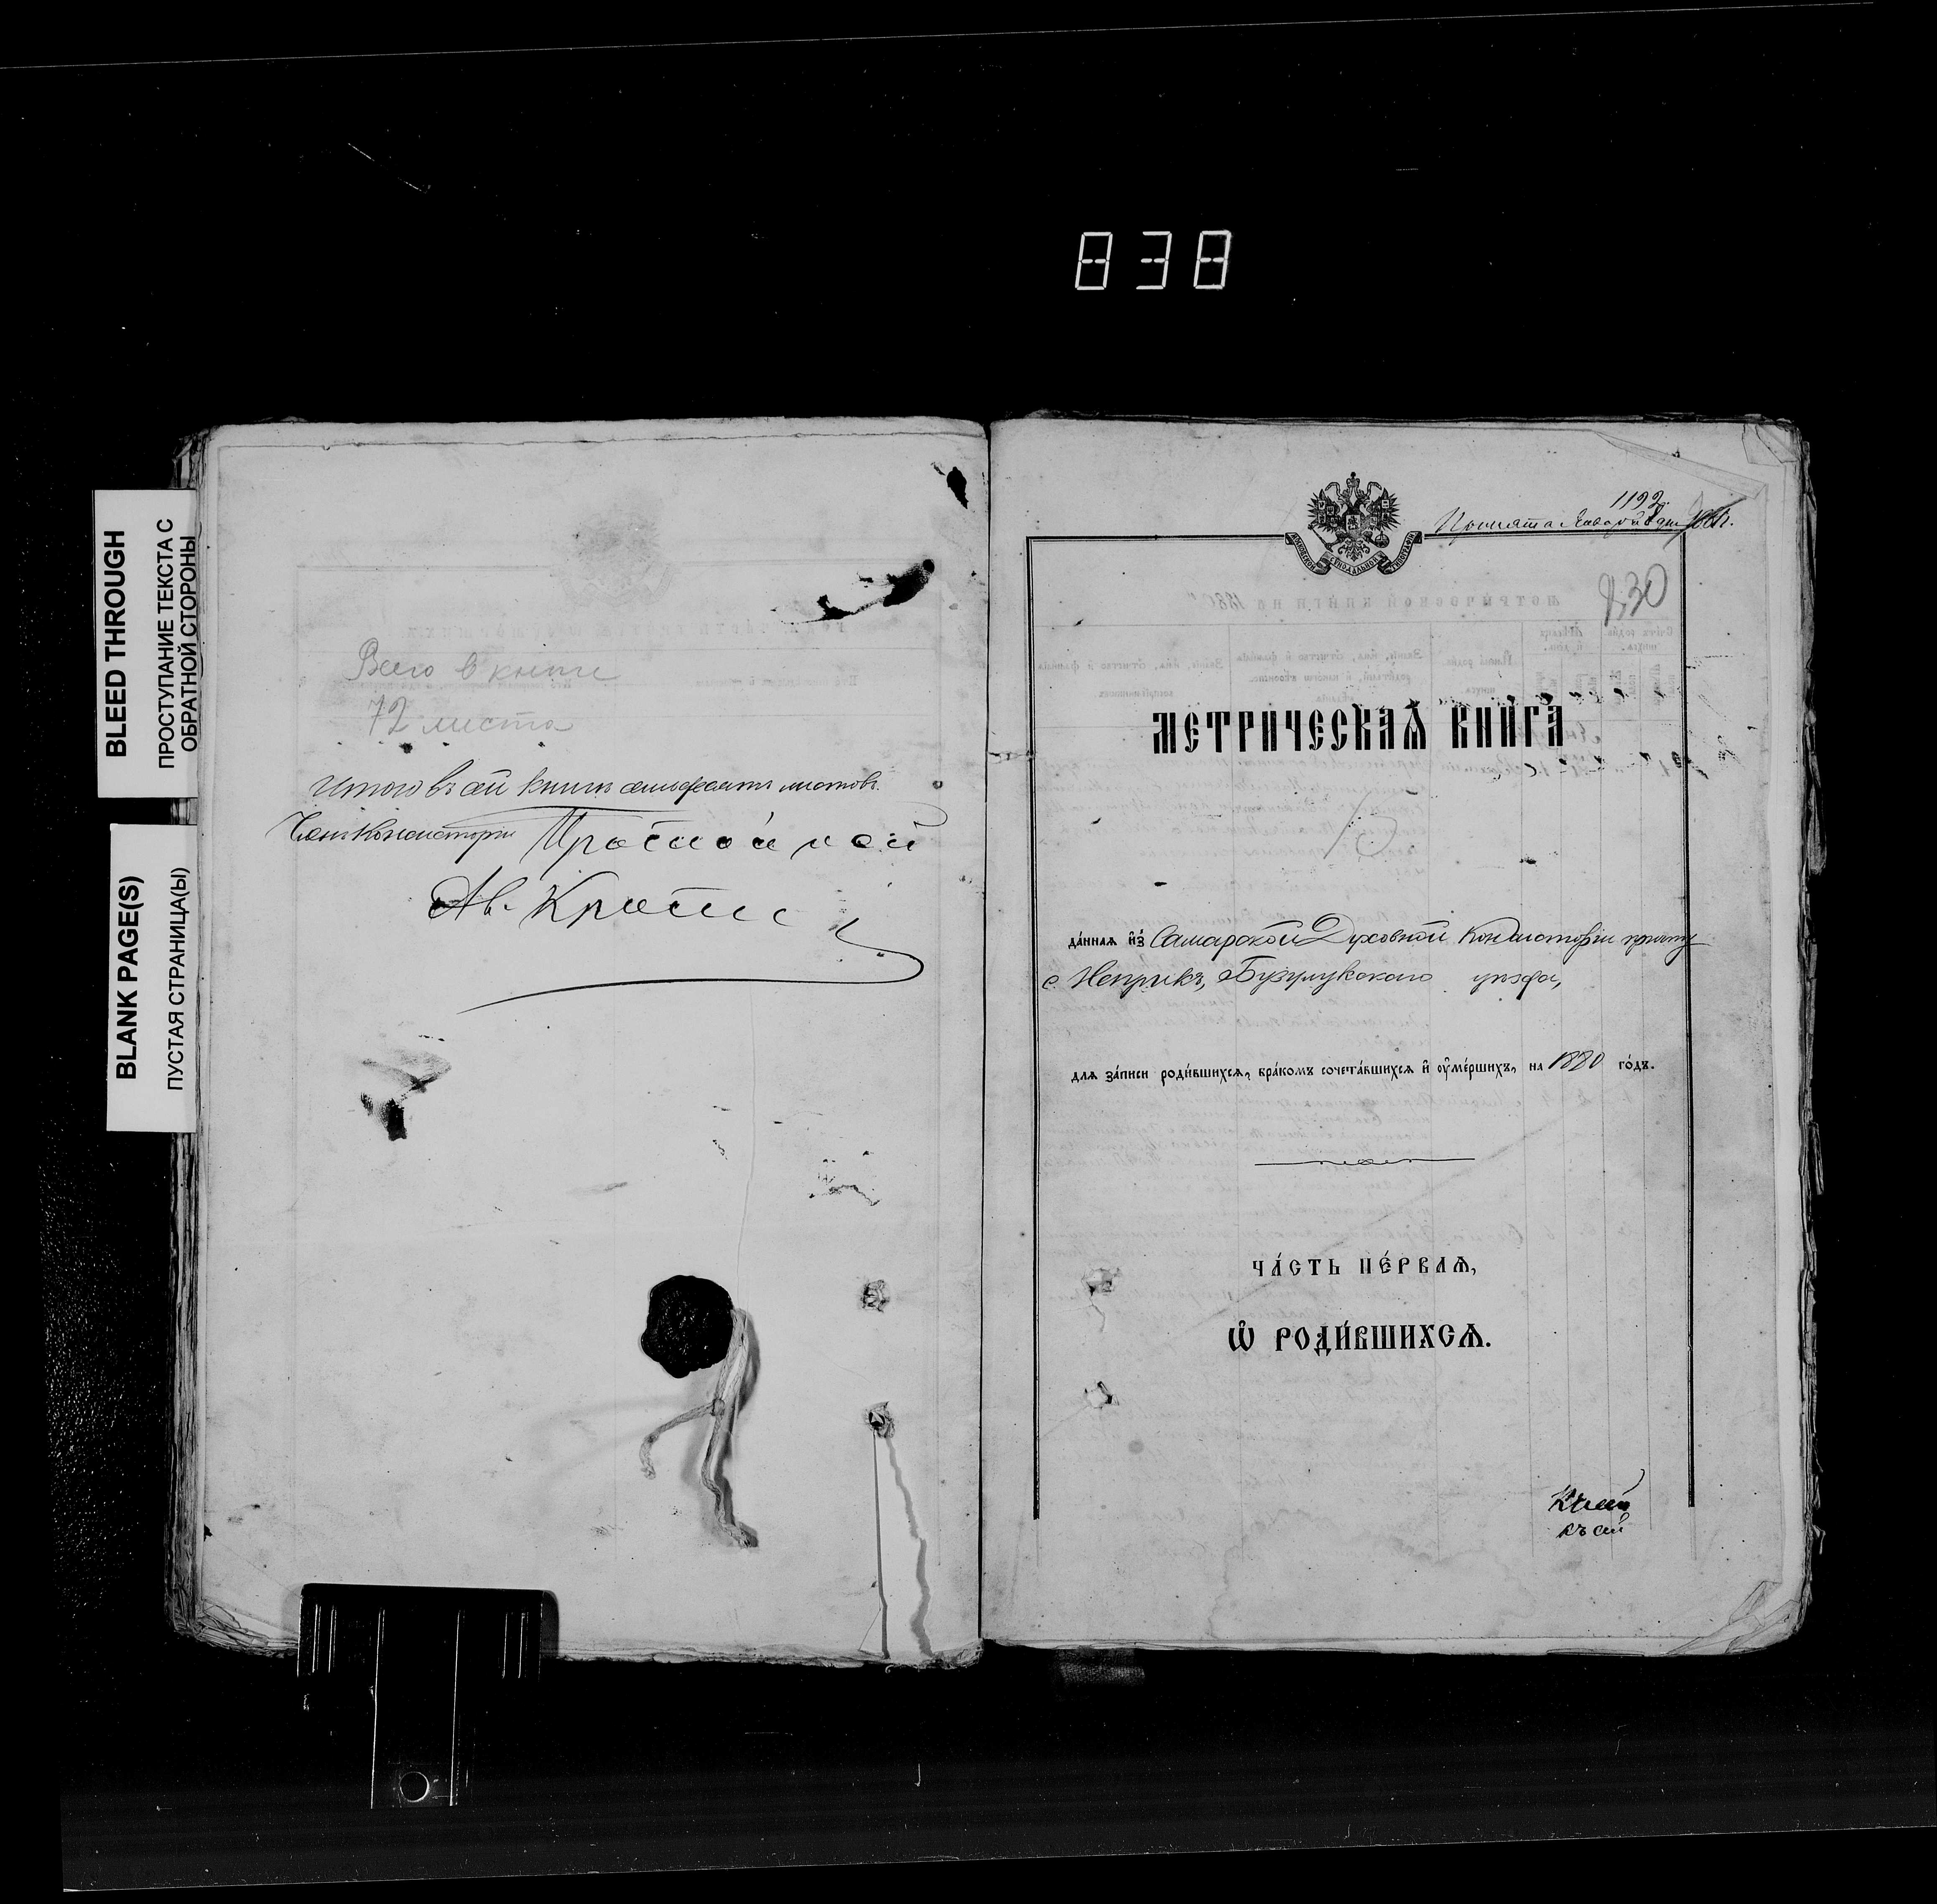 838
BLEED THROUGH
ПРОСТУПАНИЕ ТЕКСТА С
ОБРАТНОЙ СТОРОНЫ
BLANK PAGE(S)
ПУСТАЯ СТРАНИЦА(Ы)
Всего в книге
72 листа
Итого въ сей книгѣ семьдесятъ листовъ.
Членъ Консисторіи
Ав. Кротк
1192.
Принята
МОСКОВСКОЙ СѴНОДАЛЬНОЙ ТИПОГРАФІИ
830
МЕТРИЧЕСКАѦ КНИГА
да́ннаѧ и҆з̾ Самарской Духовной Консисторіи причту
с. Неприкъ, Бузулукскаго уѣзда,
длѧ за́писи роди́вшихсѧ, бра́комъ сочета́вшихсѧ и҆ ѹ҆ме́ршихъ, на 1880 го́дъ.
ЧА́СТЬ ПЕ́РВАѦ,
Ѡ҆ РОДИ́ВШИХСѦ.
къ сей